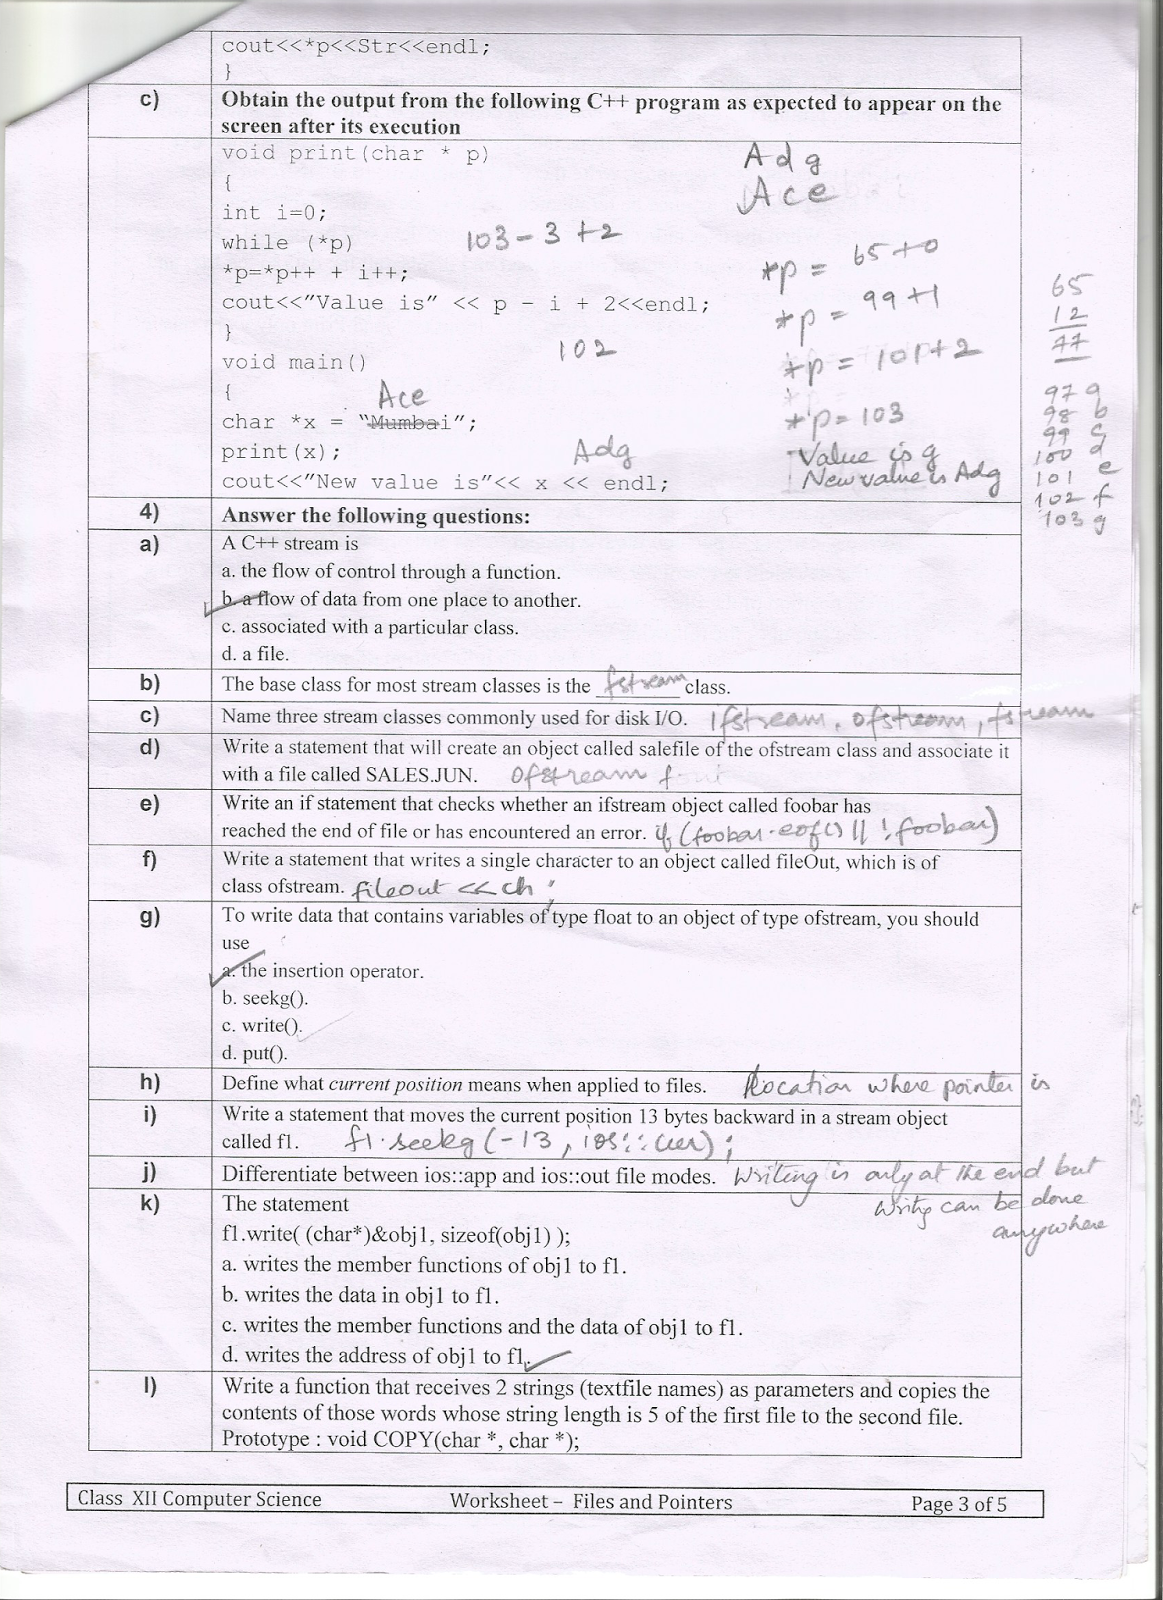 cout<<*p<<Str<<endl;
}
c) Obtain the output from the following C++ program as expected to appear on the
screen after its execution
void print(char * p)
Adg
{
Ace
int i=0;
while (*p)
103-3+2
*p=*p++ + i++;
*p = 65+0
cout<<"Value is" << p - i + 2<<endl;
*p = 99+1
65
12
77
}
102
void main()
*p = 101+2
{
Ace
char *x = "Mumbai";
*p=103
print(x);
Adg
Value is g
cout<<"New value is"<< x << endl;
New value is Adg
97 a
98 b
99 c
100 d
101 e
102 f
103 g
4) Answer the following questions:
a) A C++ stream is
a. the flow of control through a function.
b. a flow of data from one place to another.
c. associated with a particular class.
d. a file.
b) The base class for most stream classes is the fstream class.
c) Name three stream classes commonly used for disk I/O. ifstream, ofstream, fstream
d) Write a statement that will create an object called salefile of the ofstream class and associate it
with a file called SALES.JUN. Ofstream
e) Write an if statement that checks whether an ifstream object called foobar has
reached the end of file or has encountered an error. if (foobar.eof() || !foobar)
f) Write a statement that writes a single character to an object called fileOut, which is of
class ofstream. fileout <<ch;
g) To write data that contains variables of type float to an object of type ofstream, you should
use
a. the insertion operator.
b. seekg().
c. write().
d. put().
h) Define what current position means when applied to files. Location where pointer is
i) Write a statement that moves the current position 13 bytes backward in a stream object
called f1. f1.seekg(-13, ios::cur);
j) Differentiate between ios::app and ios::out file modes. Writing is only at the end but
k) The statement
writing can be done
f1.write( (char*)&obj1, sizeof(obj1) );
anywhere
a. writes the member functions of obj1 to f1.
b. writes the data in obj1 to f1.
c. writes the member functions and the data of obj1 to f1.
d. writes the address of obj1 to f1.
l) Write a function that receives 2 strings (textfile names) as parameters and copies the
contents of those words whose string length is 5 of the first file to the second file.
Prototype : void COPY(char *, char *);
Class XII Computer Science Worksheet – Files and Pointers Page 3 of 5